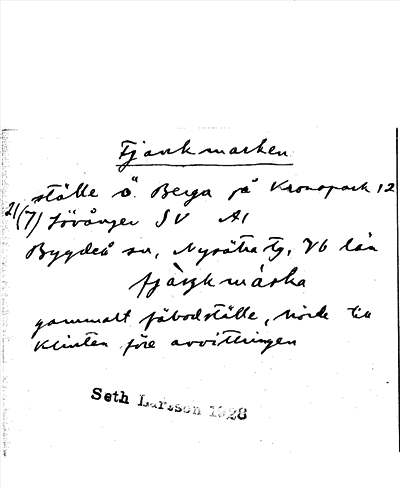 Fjärkmarken
ställe ö. Berga på Kronopark 12
21(7) Lövånger SV A1
Bygdeå sn, Nysätra tg, Vb län
fjärkmarka
gammalt fäbodställe, hörde till
Klinten före avvittringen
Seth Larsson 1928